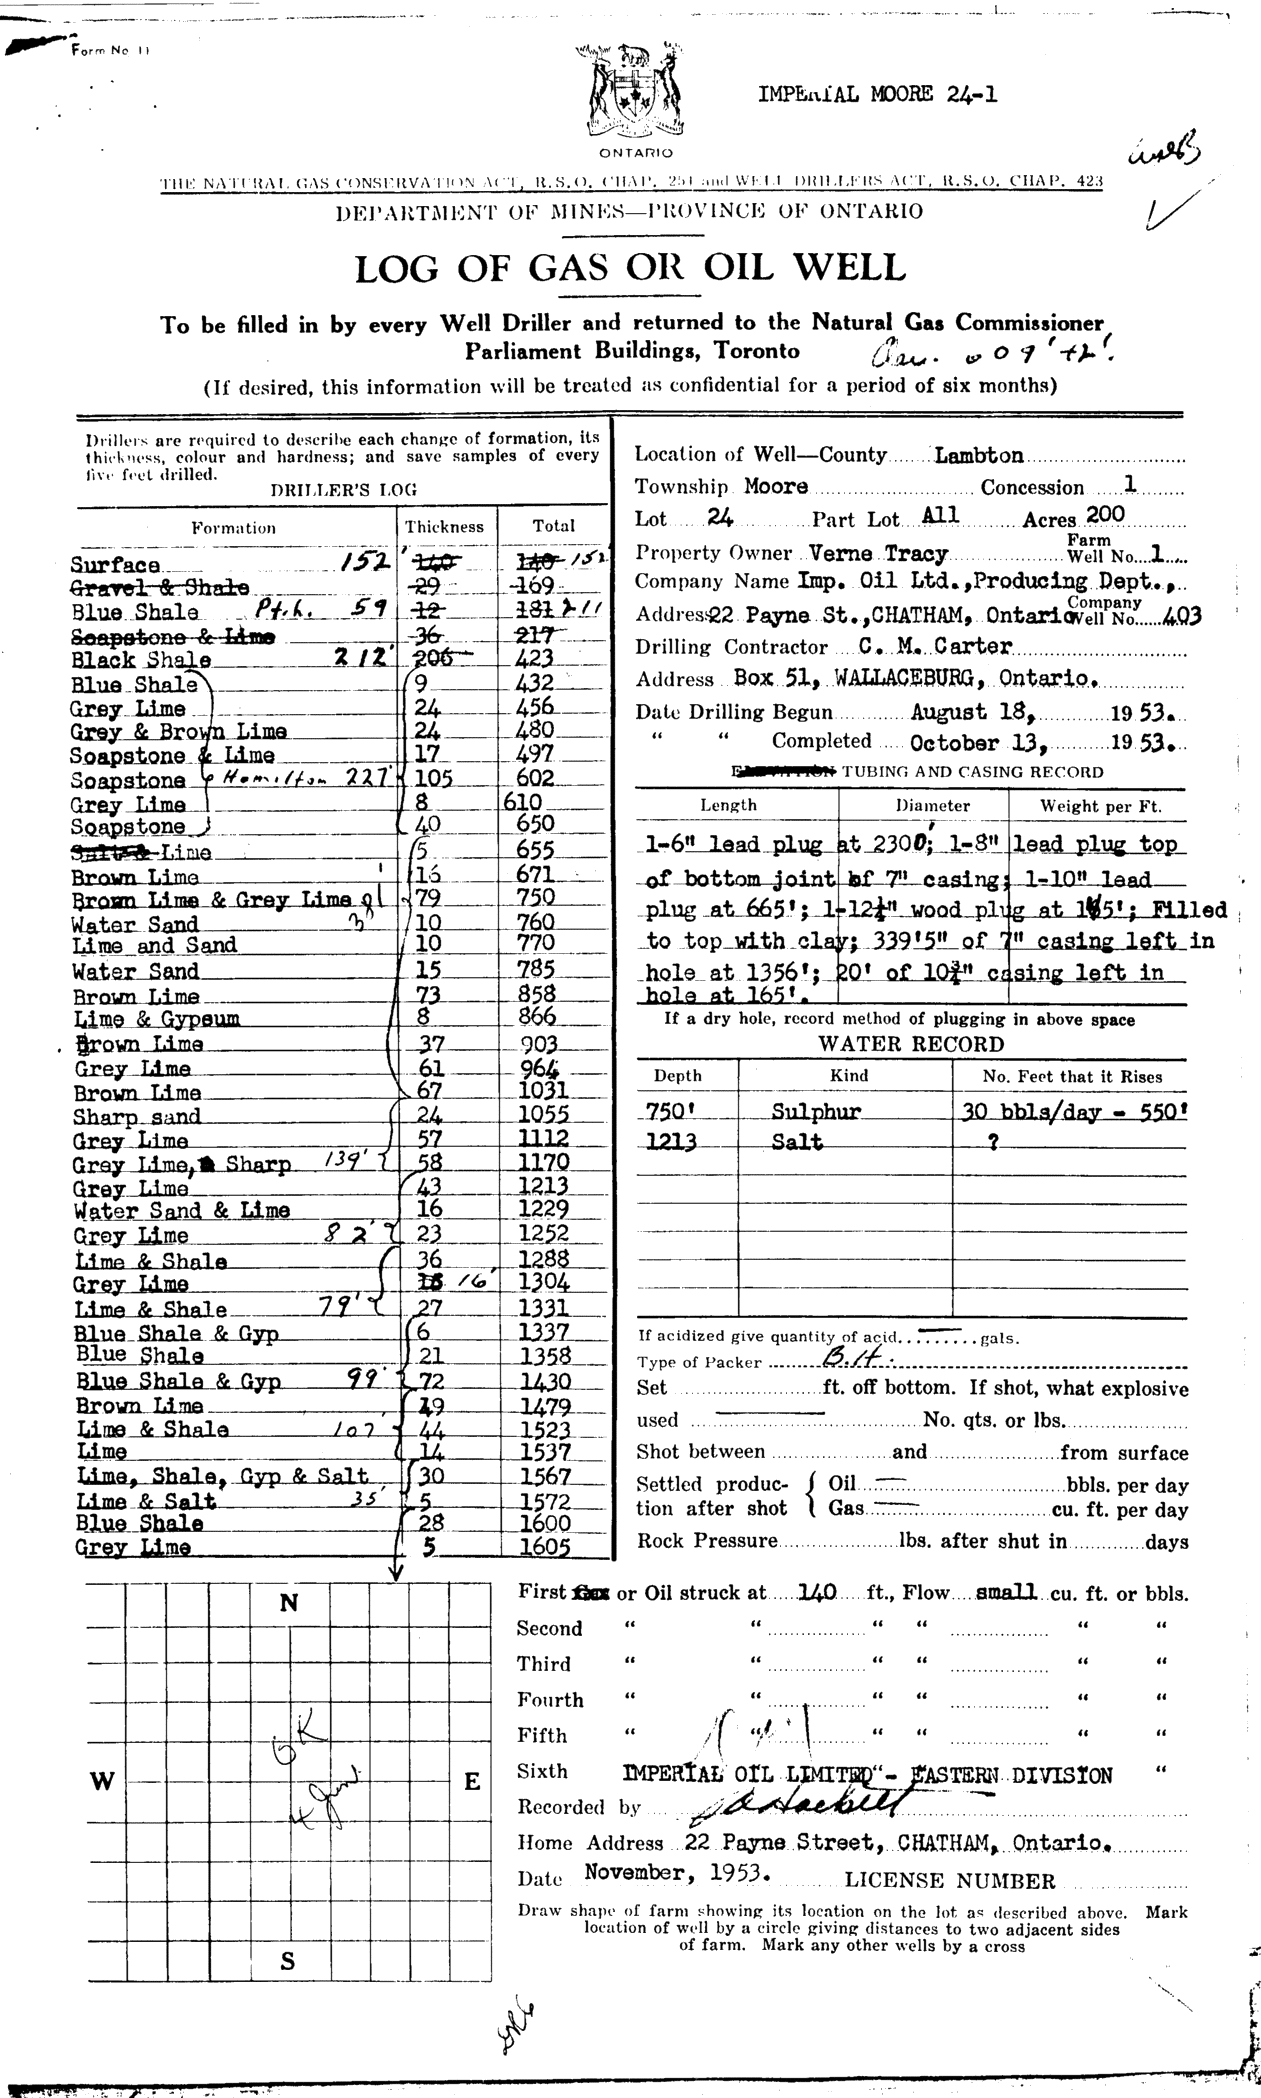 Form No 11
IMPERIAL MOORE 24-1
ONTARIO
THE NATURAL GAS CONSERVATION ACT, R.S.O. CHAP. 251 and WELL DRILLERS ACT, R.S.O. CHAP. 423
DEPARTMENT OF MINES—PROVINCE OF ONTARIO
LOG OF GAS OR OIL WELL
To be filled in by every Well Driller and returned to the Natural Gas Commissioner,
Parliament Buildings, Toronto
(If desired, this information will be treated as confidential for a period of six months)
Drillers are required to describe each change of formation, its
thickness, colour and hardness; and save samples of every
five feet drilled.
DRILLER'S LOG
Formation Thickness Total
Surface 152' 140 140 152
Gravel & Shale 29 169
Blue Shale 59 12 181 211
Soapstone & Lime 36 217
Black Shale 212' 206 423
Blue Shale 9 432
Grey Lime 24 456
Grey & Brown Lime 24 480
Soapstone & Lime 17 497
Soapstone Hamilton 227' 105 602
Grey Lime 8 610
Soapstone 40 650
Salt & Lime 5 655
Brown Lime 16 671
Brown Lime & Grey Lime 79 750
Water Sand 10 760
Lime and Sand 10 770
Water Sand 15 785
Brown Lime 73 858
Lime & Gypsum 8 866
Brown Lime 37 903
Grey Lime 61 964
Brown Lime 67 1031
Sharp sand 24 1055
Grey Lime 57 1112
Grey Lime, Sharp 139' 58 1170
Grey Lime 43 1213
Water Sand & Lime 16 1229
Grey Lime 82' 23 1252
Lime & Shale 36 1288
Grey Lime 16' 1304
Lime & Shale 79' 27 1331
Blue Shale & Gyp 6 1337
Blue Shale 21 1358
Blue Shale & Gyp 99' 72 1430
Brown Lime 49 1479
Lime & Shale 107 44 1523
Lime 14 1537
Lime, Shale, Gyp & Salt 30 1567
Lime & Salt 35' 5 1572
Blue Shale 28 1600
Grey Lime 5 1605
Location of Well—County Lambton
Township Moore Concession 1
Lot 24 Part Lot All Acres 200
Property Owner Verne Tracy Farm Well No. 1
Company Name Imp. Oil Ltd.,Producing Dept.,
Address 22 Payne St.,CHATHAM, Ontario Company Well No. 403
Drilling Contractor C. M. Carter
Address Box 51, WALLACEBURG, Ontario.
Date Drilling Begun August 18, 1953.
" " Completed October 13, 1953.
TUBING AND CASING RECORD
Length Diameter Weight per Ft.
1-6" lead plug at 2300'; 1-8" lead plug top
of bottom joint of 7" casing; 1-10" lead
plug at 665'; 1-12½" wood plug at 165'; Filled
to top with clay; 339'5" of 7" casing left in
hole at 1356'; 20' of 10¾" casing left in
hole at 165'.
If a dry hole, record method of plugging in above space
WATER RECORD
Depth Kind No. Feet that it Rises
750' Sulphur 30 bbls/day - 550'
1213 Salt ?
If acidized give quantity of acid.........gals.
Type of Packer B.H.
Set ft. off bottom. If shot, what explosive
used No. qts. or lbs.
Shot between and from surface
Settled produc- { Oil bbls. per day
tion after shot { Gas cu. ft. per day
Rock Pressure lbs. after shut in days
First Gas or Oil struck at 140 ft., Flow small cu. ft. or bbls.
Second " " " " " "
Third " " " " " "
Fourth " " " " " "
Fifth " " " " " "
Sixth IMPERIAL OIL LIMITED - EASTERN DIVISION "
Recorded by
Home Address 22 Payne Street, CHATHAM, Ontario.
Date November, 1953. LICENSE NUMBER
Draw shape of farm showing its location on the lot as described above. Mark
location of well by a circle giving distances to two adjacent sides
of farm. Mark any other wells by a cross
N
OK
W E
S